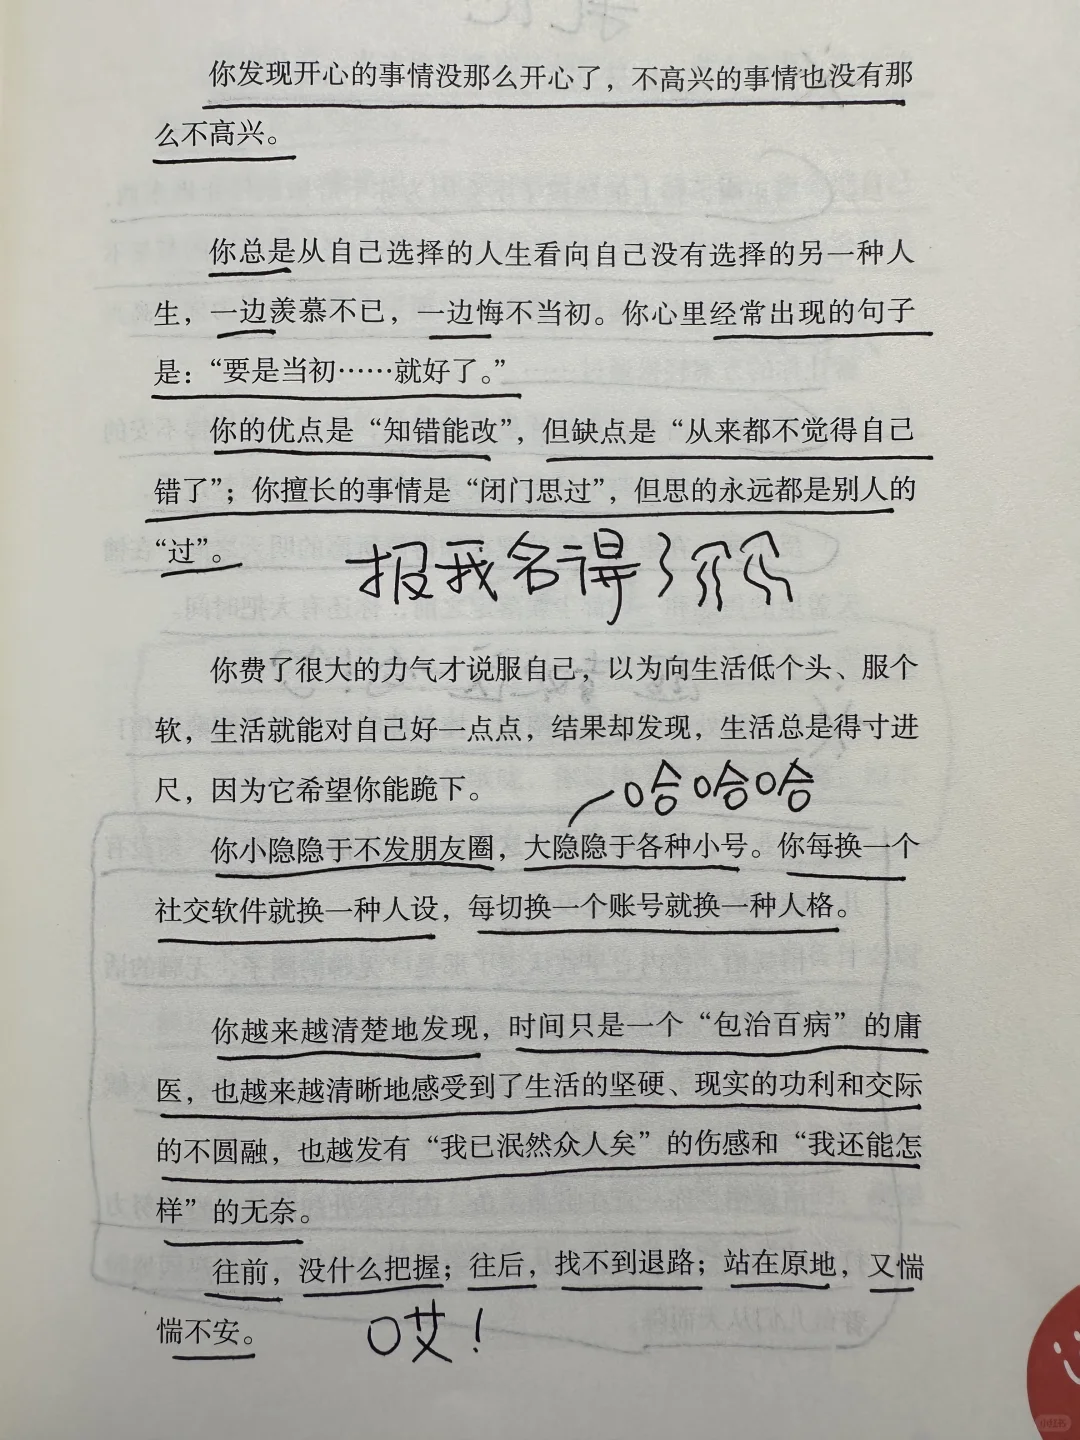 你发现开心的事情没那么开心了，不高兴的事情也没有那
么不高兴。
你总是从自己选择的人生看向自己没有选择的另一种人
生，一边羡慕不已，一边悔不当初。你心里经常出现的句子
是：“要是当初……就好了。”
你的优点是“知错能改”，但缺点是“从来都不觉得自己
错了”；你擅长的事情是“闭门思过”，但思的永远都是别人的
“过”。
报我名得了
你费了很大的力气才说服自己，以为向生活低个头、服个
软，生活就能对自己好一点点，结果却发现，生活总是得寸进
尺，因为它希望你能跪下。
哈哈哈
你小隐隐于不发朋友圈，大隐隐于各种小号。你每换一个
社交软件就换一种人设，每切换一个账号就换一种人格。
你越来越清楚地发现，时间只是一个“包治百病”的庸
医，也越来越清晰地感受到了生活的坚硬、现实的功利和交际
的不圆融，也越发有“我已泯然众人矣”的伤感和“我还能怎
样”的无奈。
往前，没什么把握；往后，找不到退路；站在原地，又惴
惴不安。
哎！